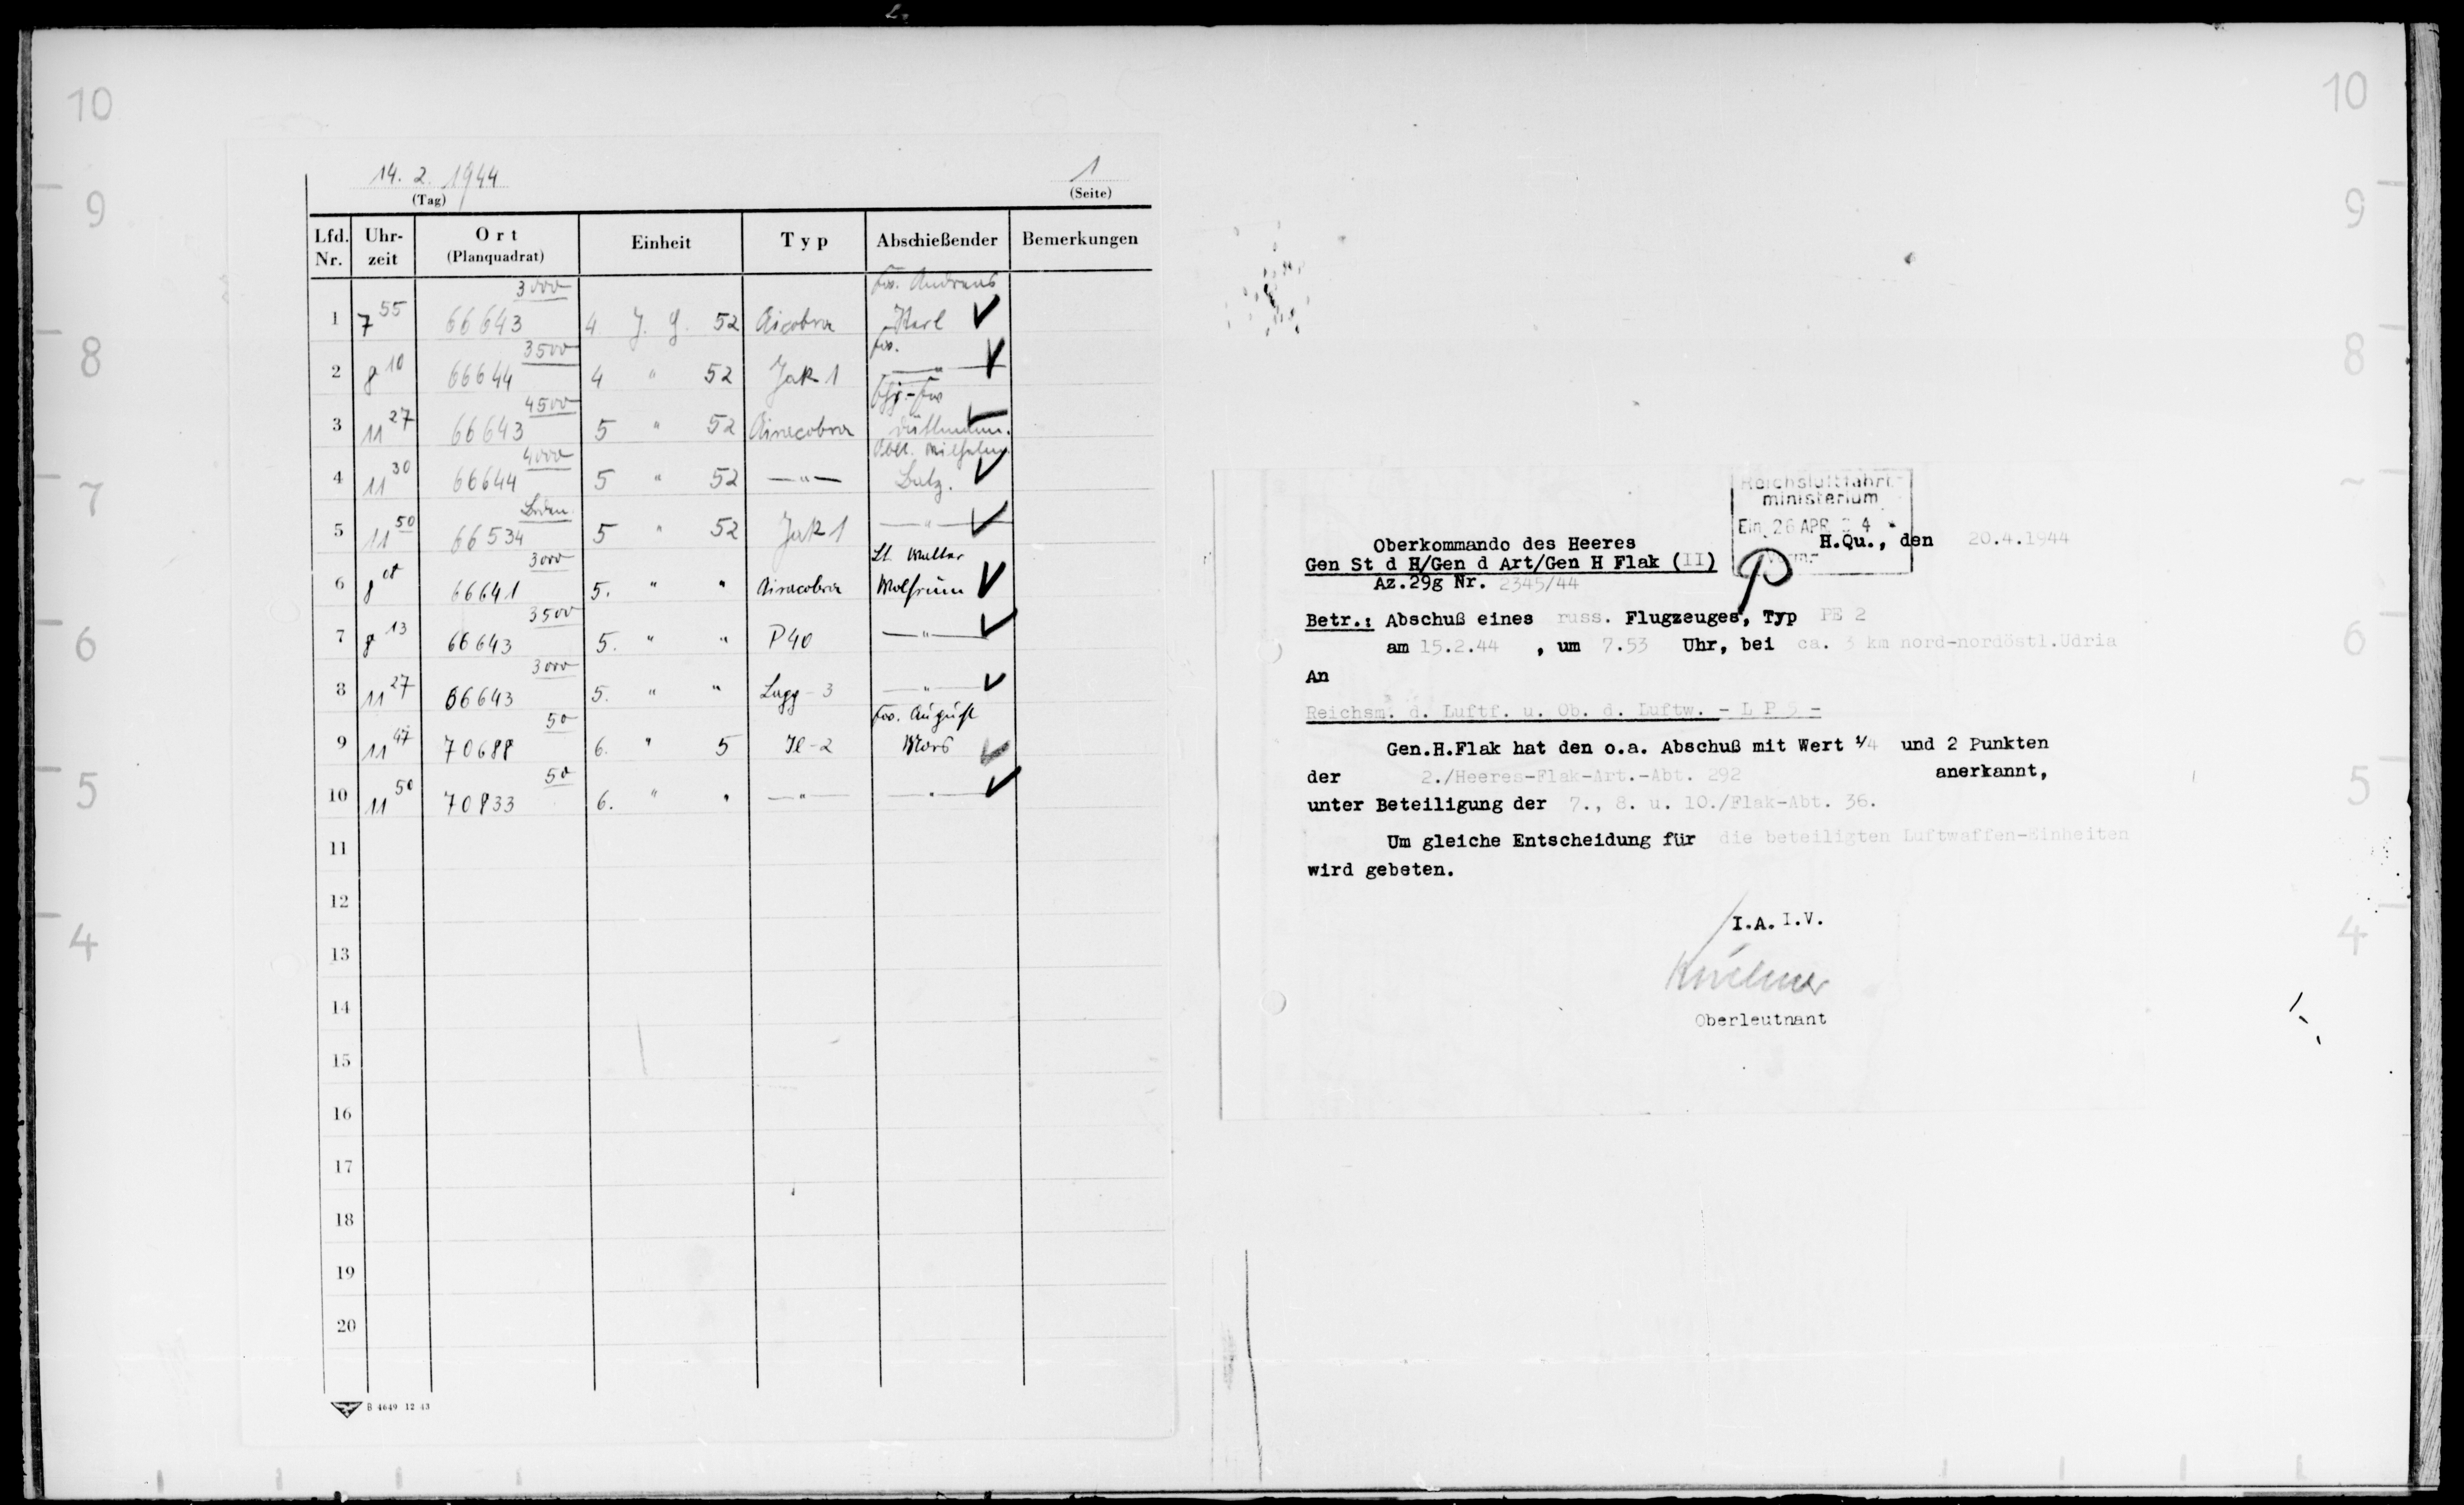 14. 2. 1944
(Tag)
1
(Seite)
Lfd. Nr. Uhr-zeit Ort (Planquadrat) Einheit Typ Abschießender Bemerkungen
1 7 55 66643 3000 4 J. G. 52 Aicobra Fw. Andreas Sterl
2 8 10 66644 3500 4 " 52 Jak 1 Fw. — " —
3 11 27 66643 4500 5 " 52 Airacobra Fhj.-Fw
4 11 30 66644 4000 5 " 52 — " — Oblt. Wilhelm Batz.
5 11 50 66534 Boden 5 " 52 Jak 1 — " —
6 8 66641 3000 5. " " Airacobra Lt. Walter Wolfrum
7 8 13 66643 3500 5. " " P40 — " —
8 11 27 66643 3000 5. " " Lagg-3 — " —
9 11 47 70688 50 6. " 5 Jl-2 Fw. August Mors
10 11 50 70833 50 6. " " — " — — " —
11
12
13
14
15
16
17
18
19
20
B 4649 12 43
Reichsluftfahrt-
ministerium
Ein. 26 APR 4
Oberkommando des Heeres
H.Qu., den 20.4.1944
Gen St d H/Gen d Art/Gen H Flak (II)
Az.29g Nr. 2345/44
Betr.: Abschuß eines russ. Flugzeuges, Typ PE 2
am 15.2.44 , um 7.53 Uhr, bei ca. 3 km nord-nordöstl.Udria
An
Reichsm. d. Luftf. u. Ob. d. Luftw. - L P 5 -
Gen.H.Flak hat den o.a. Abschuß mit Wert 1/4 und 2 Punkten
der 2./Heeres-Flak-Art.-Abt. 292 anerkannt,
unter Beteiligung der 7., 8. u. 10./Flak-Abt. 36.
Um gleiche Entscheidung für die beteiligten Luftwaffen-Einheiten
wird gebeten.
I.A. I.V.
Oberleutnant
10
9
8
7
6
5
4
10
9
8
6
5
4